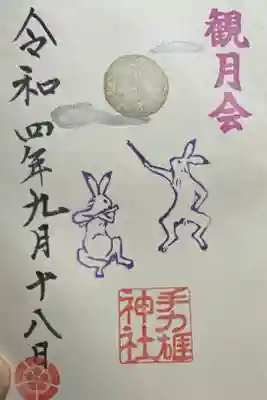 観月会
手力雄
神社
令和四年九月十八日